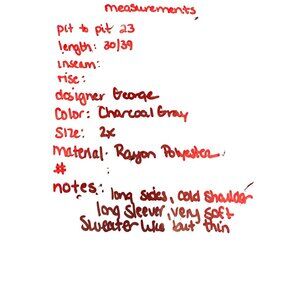 measurements
pit to pit 23
length: 30/39
inseam:
rise:
designer George
Color: Charcoal Gray
Size: 2x
Material. Rayon Polyester
#
notes: long sides, cold shoulder
long sleever, very soft
Sweater like but thin